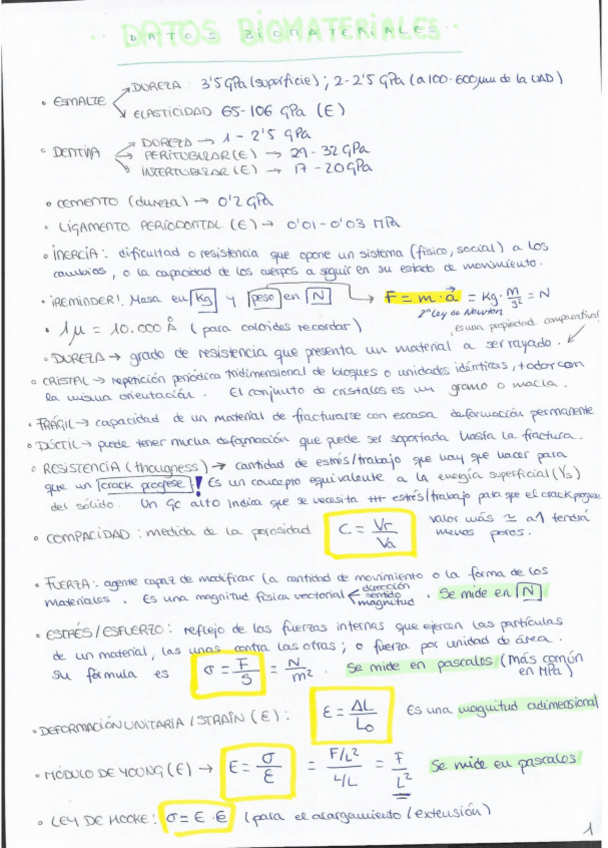 ·· DATOS BIOMATERIALES ··
• ESMALTE DUREZA 3'5 GPa (superficie) ; 2-2'5 GPa (a 100-600 µm de la UAD)
ELASTICIDAD 65-106 GPa (E)
• DENTINA DUREZA → 1 - 2'5 GPa
PERITUBULAR (E) → 29 - 32 GPa
INTERTUBULAR (E) → 17 - 20 GPa
• CEMENTO (dureza) → 0'2 GPa
• LIGAMENTO PERIODONTAL (E) → 0'01 - 0'03 MPa
• INERCIA : dificultad o resistencia que opone un sistema (físico, social) a los
cambios, o la capacidad de los cuerpos a seguir en su estado de movimiento.
• ¡REMINDER! Masa en Kg y peso en N → F = m · a = Kg · m/s² = N
2ª Ley de Newton
• 1 µ = 10.000 Å (para coloides recordar)
es una propiedad comparativa!
• DUREZA → grado de resistencia que presenta un material a ser rayado.
• CRISTAL → repetición periódica tridimensional de bloques o unidades idénticas, todas con
la misma orientación. El conjunto de cristales es un grano o macla.
• FRÁGIL → capacidad de un material de fracturarse con escasa deformación permanente
• DÚCTIL → puede tener mucha deformación que puede ser soportada hasta la fractura.
• RESISTENCIA (thougness) → cantidad de estrés/trabajo que hay que hacer para
que un crack progrese ! Es un concepto equivalente a la energía superficial (γs)
del sólido. Un Gc alto indica que se necesita +++ estrés/trabajo para que el crack progrese
• COMPACIDAD : medida de la porosidad C = Vr/Va valor más ≃ a 1 tendrá
menos poros.
• FUERZA : agente capaz de modificar la cantidad de movimiento o la forma de los
materiales. Es una magnitud física vectorial dirección sentido magnitud . Se mide en N
• ESTRÉS / ESFUERZO : reflejo de las fuerzas internas que ejercen las partículas
de un material, las unas contra las otras ; o fuerza por unidad de área.
Su fórmula es σ = F/S = N/m² . Se mide en pascales (más común
en MPa)
• DEFORMACIÓN UNITARIA / STRAIN (ε) : ε = ΔL/L₀ Es una magnitud adimensional
• MÓDULO DE YOUNG (E) → E = σ/ε = F/L²/L/L = F/L² Se mide en pascales
• LEY DE HOOKE : σ = E · ε (para el alargamiento / extensión)
1